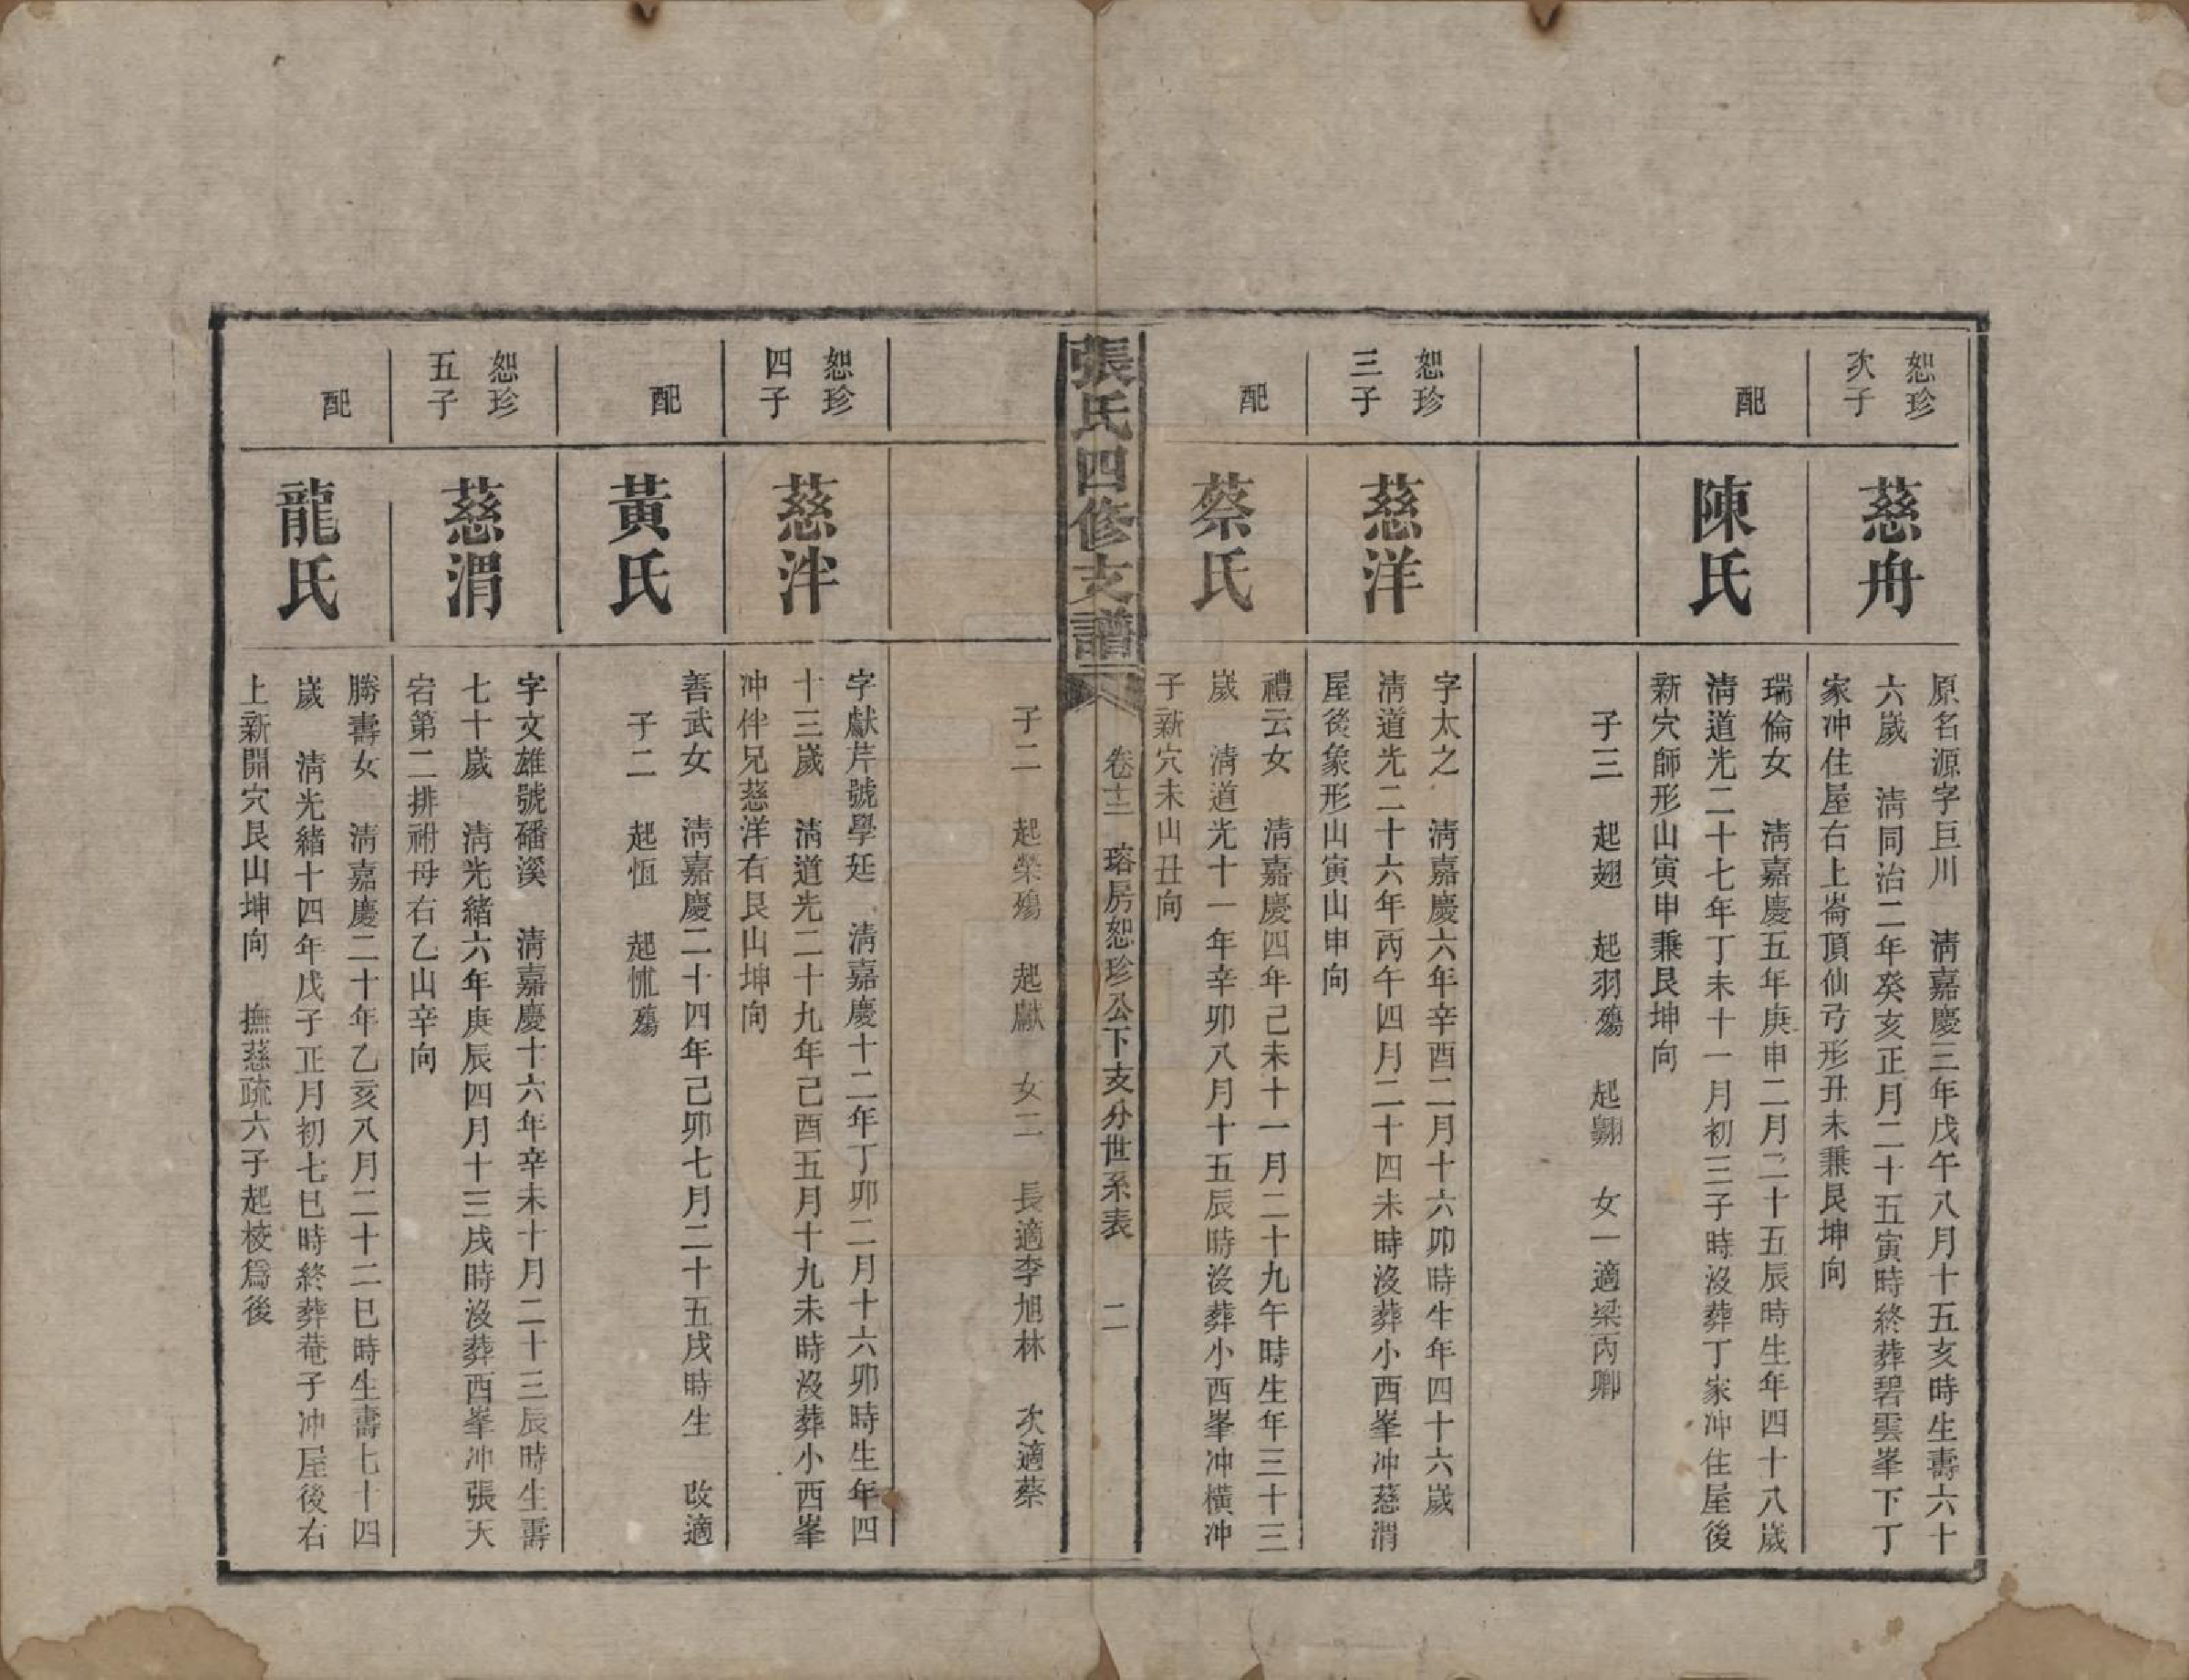 恕珍
次子
慈舟
原名源字巨川　淸嘉慶三年戊午八月十五亥時生壽六十
六歲　淸同治二年癸亥正月二十五寅時終葬碧雲峯下丁
家冲住屋右上崙頂仙弓形丑未兼艮坤向
配
陳氏
瑞倫女　淸嘉慶五年庚申二月二十五辰時生年四十八歲
淸道光二十七年丁未十一月初三子時沒葬丁家冲住屋後
新穴師形山寅申兼艮坤向
子三　起翅　起羽殤　起翺　女一適梁丙卿
恕珍
三子
慈洋
字太之　淸嘉慶六年辛酉二月十六卯時生年四十六歲
淸道光二十六年丙午四月二十四未時沒葬小西峯冲慈渭
屋後象形山寅山申向
配
蔡氏
禮云女　淸嘉慶四年己未十一月二十九午時生年三十三
歲　淸道光十一年辛卯八月十五辰時沒葬小西峯冲橫冲
子新穴未山丑向
張氏四修支譜
卷十二　瑢房恕珍公下支分世系表　二
子二　起榮殤　起獻　女二　長適李旭林　次適蔡
恕珍
四子
慈泮
字獻芹號學廷　淸嘉慶十二年丁卯二月十六卯時生年四
十三歲　淸道光二十九年己酉五月十九未時沒葬小西峯
冲伴兄慈洋右艮山坤向
配
黃氏
善武女　淸嘉慶二十四年己卯七月二十五戌時生　改適
子二　起恒　起怵殤
恕珍
五子
慈渭
字文雄號磻溪　淸嘉慶十六年辛未十月二十三辰時生壽
七十歲　淸光緖六年庚辰四月十三戌時沒葬西峯冲張天
宕第二排祔母右乙山辛向
配
龍氏
勝壽女　淸嘉慶二十年乙亥八月二十二巳時生壽七十四
歲　淸光緖十四年戊子正月初七巳時終葬菴子冲屋後右
上新開穴艮山坤向　撫慈疏六子起棱爲後